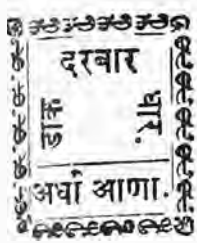 दरबार
डाक
धार.
अर्धा आणा.